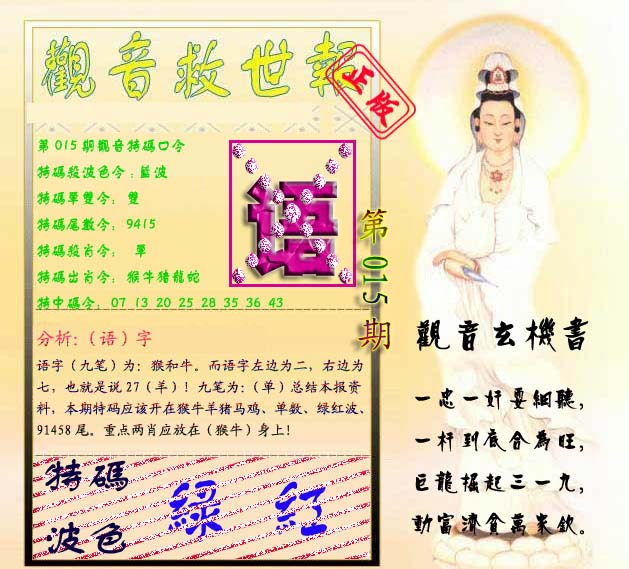 觀音救世報
正版
第015期觀音特碼口令
特碼殺波色令：藍波
特碼單雙令： 雙
特碼尾數令： 9415
特碼殺肖令： 單
特碼出肖令： 猴牛猪龍蛇
特中碼令： 07 13 20 25 28 35 36 43
语
第015期
分析:（语）字
语字（九笔）为：猴和牛。而语字左边为二，右边为
七，也就是说27（羊）！九笔为：（单）总结本报资
料，本期特码应该开在猴牛羊猪马鸡、单数、绿红波、
91458 尾。重点两肖应放在（猴牛）身上！
特碼
波色
綠 紅
觀音玄機書
一忠一奸要細聽，
一杆到底合為旺，
巨龍掘起三一九，
動富濟貧萬来欽。